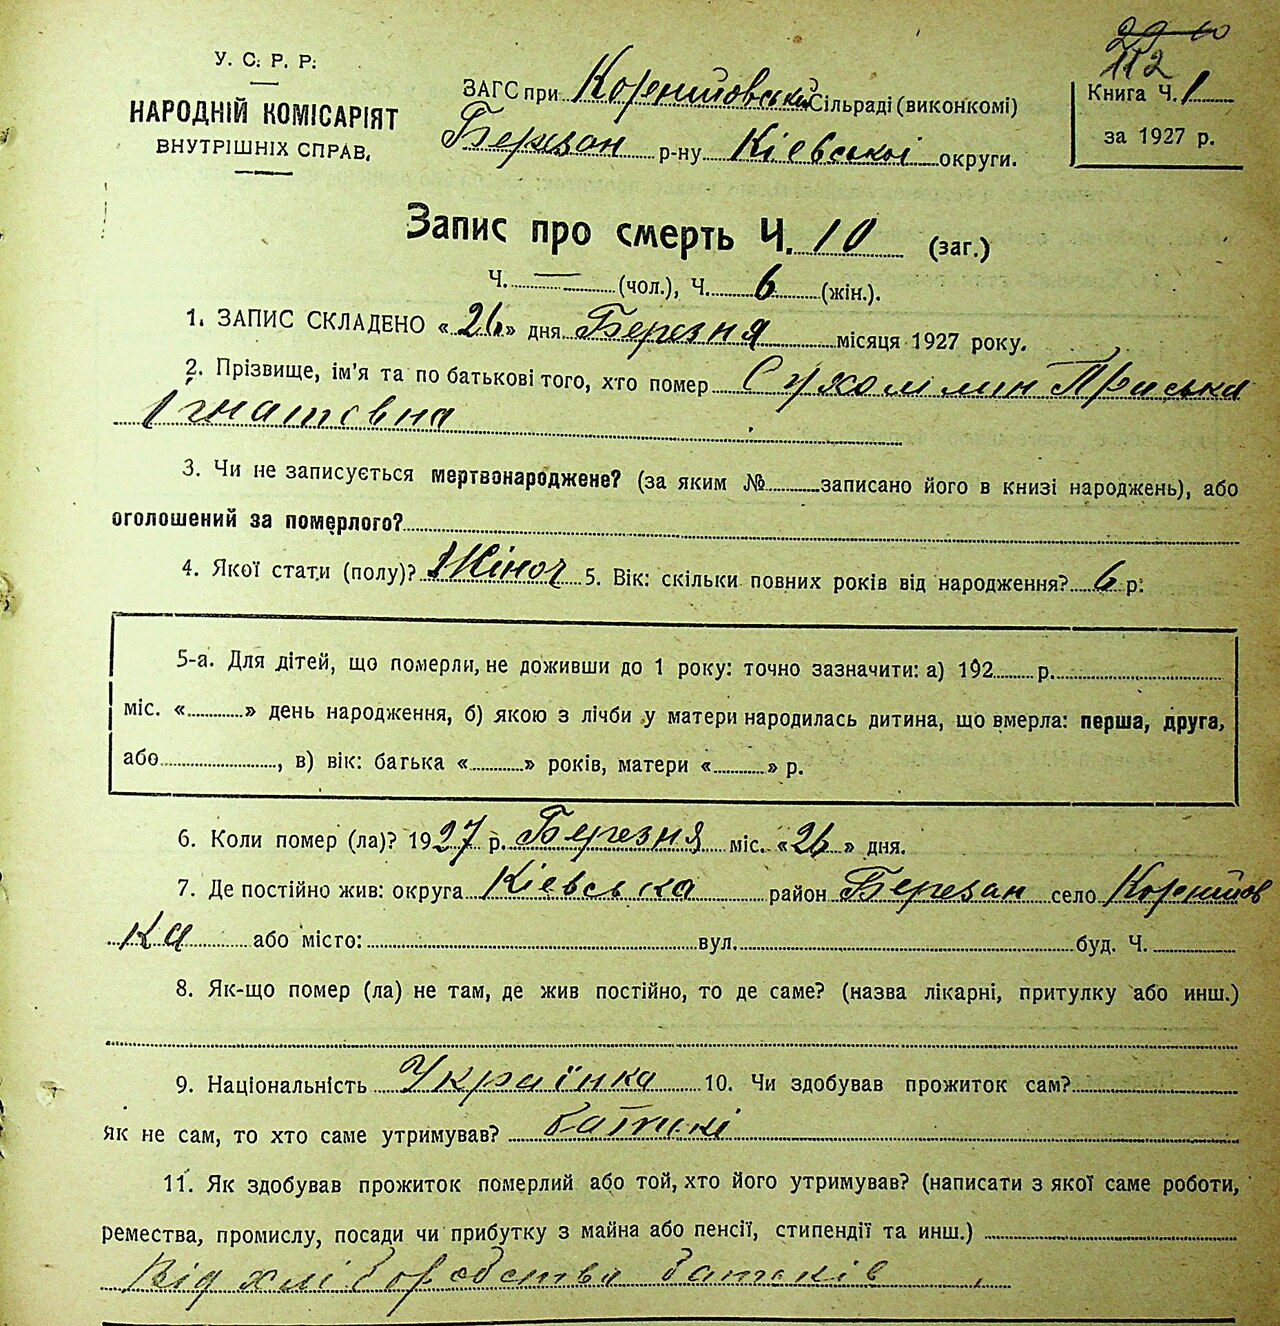 112
У. С. Р. Р.
НАРОДНІЙ КОМІСАРІЯТ
ВНУТРІШНІХ СПРАВ.
ЗАГС при Коренйовській Сільраді (виконкомі)
Березан р-ну Кієвської округи.
Книга Ч. 1
за 1927 р.
Запис про смерть Ч. 10 (заг.)
Ч. — (чол.), Ч. 6 (жін.).
1. ЗАПИС СКЛАДЕНО «26» дня Березня місяця 1927 року.
2. Прізвище, ім'я та по батькові того, хто помер СухомлинПриська
Ігнатовна
3. Чи не записується мертвонароджене? (за яким № записано його в книзі народжень), або
оголошений за померлого?
4. Якої стати (полу)? Жіноч 5. Вік: скільки повних років від народження? 6 р:
5-а. Для дітей, що померли, не доживши до 1 року: точно зазначити: а) 192 р.
міс. « » день народження, б) якою з лічби у матери народилась дитина, що вмерла: перша, друга,
або , в) вік: батька « » років, матери « » р.
6. Коли помер (ла)? 1927 р. Березня міс. «26» дня.
7. Де постійно жив: округа Кієвська район Березан село Коренйов
ка або місто: вул. буд. Ч.
8. Як-що помер (ла) не там, де жив постійно, то де саме? (назва лікарні, притулку або инш.)
9. Національність Українка 10. Чи здобував прожиток сам?
Як не сам, то хто саме утримував? батьки
11. Як здобував прожиток померлий або той, хто його утримував? (написати з якої саме роботи,
ремества, промислу, посади чи прибутку з майна або пенсії, стипендії та инш.)
Від хліборобства батьків